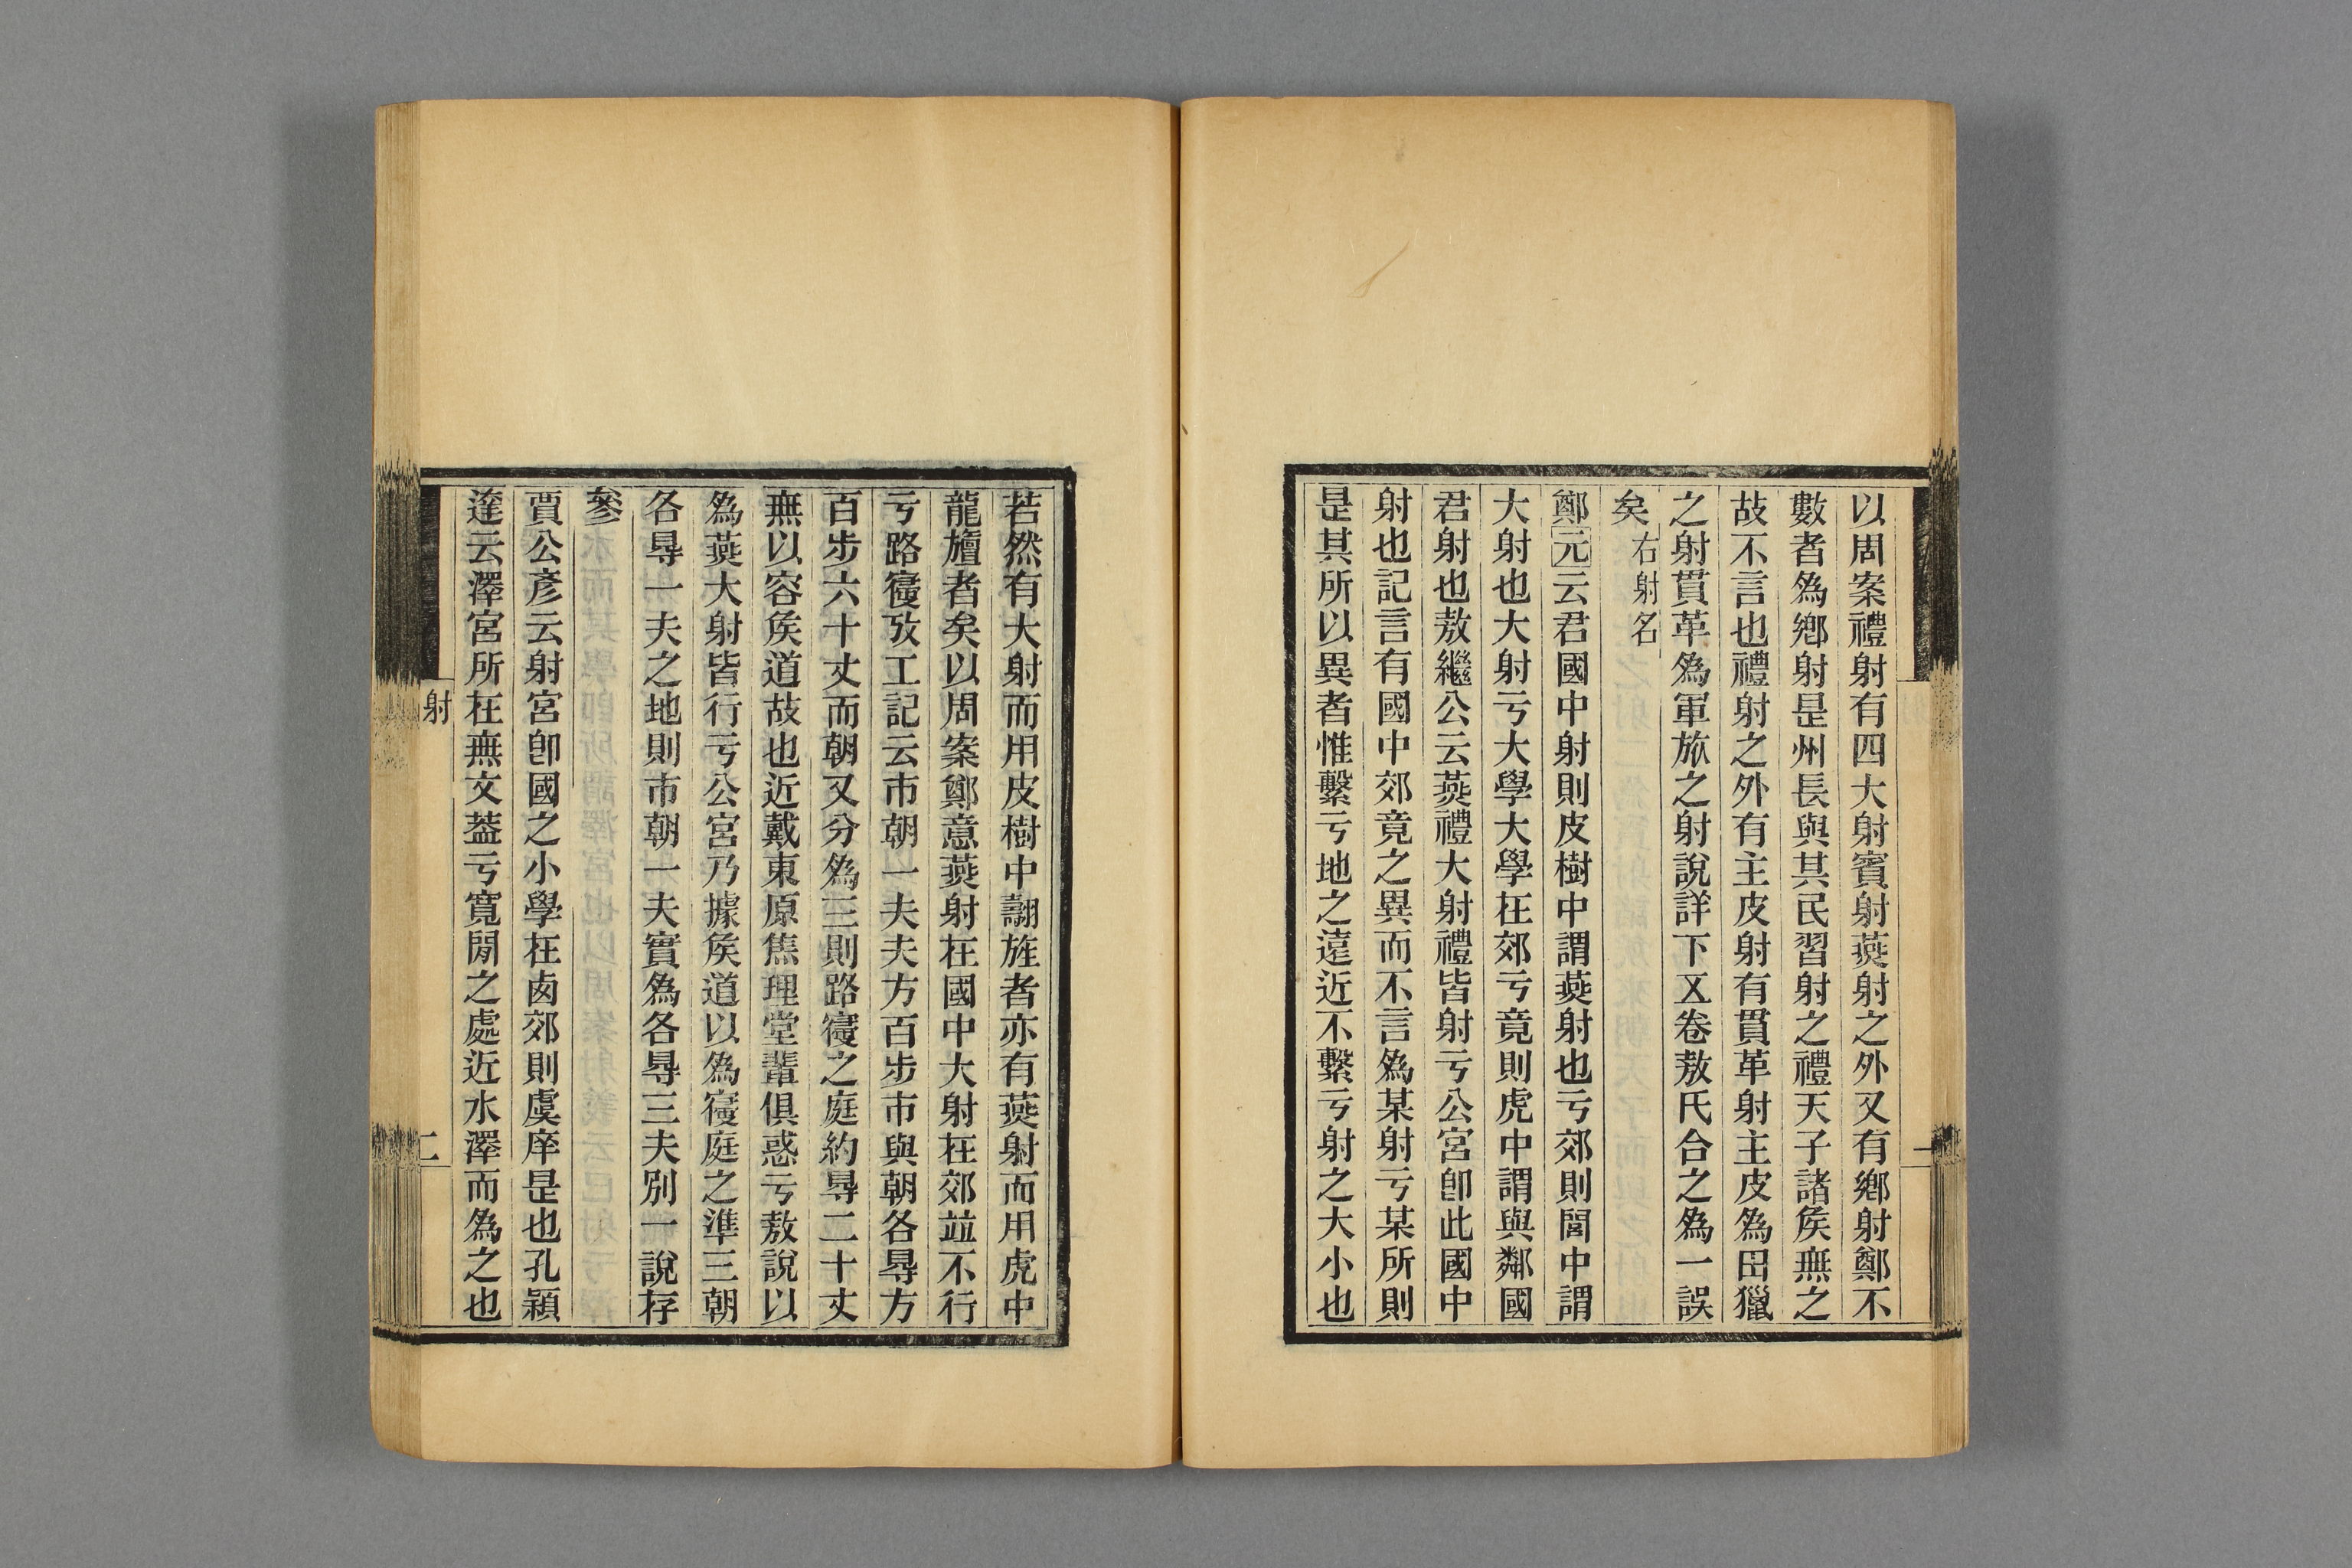 以周案禮射有四大射賓射燕射之外又有鄉射鄭不
數者爲鄉射是州長與其民習射之禮天子諸矦無之
故不言也禮射之外有主皮射有貫革射主皮爲田獵
之射貫革爲軍旅之射說詳下㐅卷敖氏合之爲一誤
矣右射名
鄭元云君國中射則皮樹中謂燕射也亏郊則閭中謂
大射也大射亏大學大學在郊亏竟則虎中謂與鄰國
君射也敖繼公云燕禮大射禮皆射亏公宮卽此國中
射也記言有國中郊竟之異而不言爲某射亏某所則
是其所以異者惟繫亏地之遠近不繫亏射之大小也
若然有大射而用皮樹中翿旌者亦有燕射而用虎中
龍旜者矣以周案鄭意燕射在國中大射在郊竝不行
亏路寑攷工記云市朝一夫夫方百步市與朝各㝵方
百步六十丈而朝又分爲三則路寑之庭約㝵二十丈
無以容矦道故也近戴東原焦理堂輩俱惑亏敖說以
爲燕大射皆行亏公宮乃據矦道以爲寑庭之準三朝
各㝵一夫之地則市朝一夫實爲各㝵三夫別一說存
參
賈公彥云射宮卽國之小學在㢴郊則虞庠是也孔穎
達云澤宮所在無文葢亏寬閒之處近水澤而爲之也
射
二